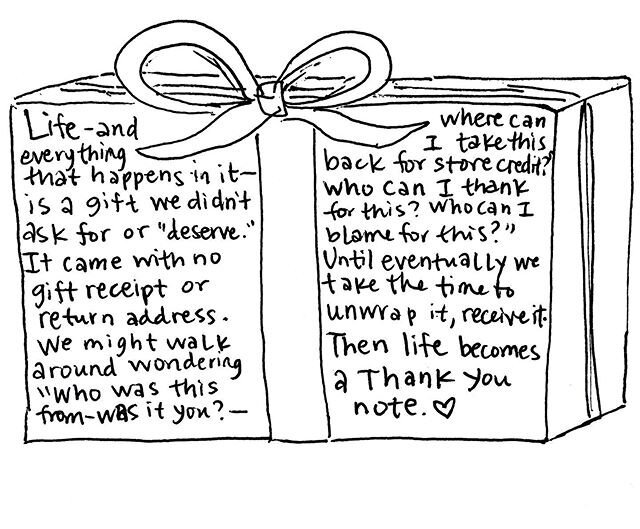 Life-and
everything
that happens in it-
is a gift we didn't
ask for or "deserve."
It came with no
gift receipt or
return address.
We might walk
around wondering
"Who was this
from-was it you?-
where can
I take this
back for store credit?
who can I thank
for this? Who can I
blame for this?"
Until eventually we
take the time to
unwrap it, receive it.
Then life becomes
a Thank you
note. ♡